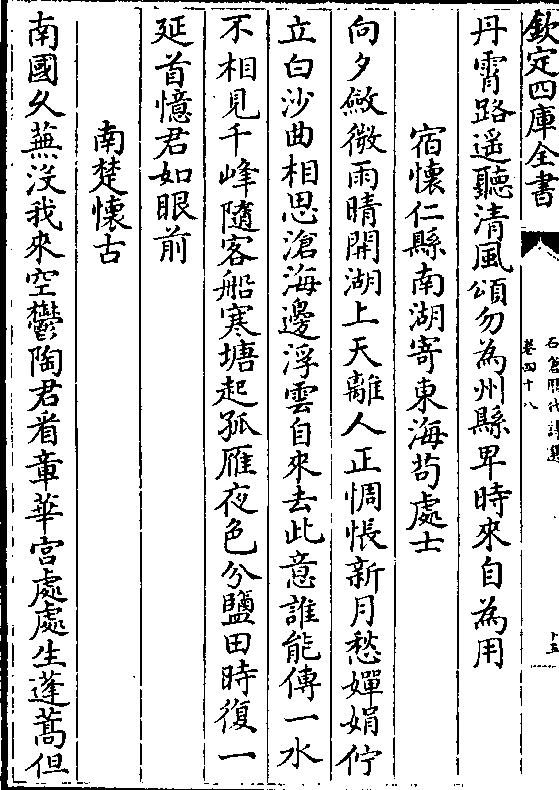 欽定四庫全書
石倉歷代詩選
卷四十八
十五
丹霄路遥聽清風頌勿為州縣卑時來自為用
宿懷仁縣南湖寄東海茍處士
向夕斂微雨晴開湖上天離人正惆悵新月愁嬋娟佇
立白沙曲相思滄海邊浮雲自來去此意誰能傳一水
不相見千峰隨客船寒塘起孤雁夜色分鹽田時復一
延首憶君如眼前
南楚懷古
南國久蕪没我來空鬱陶君看章華宫處處生蓬蒿但